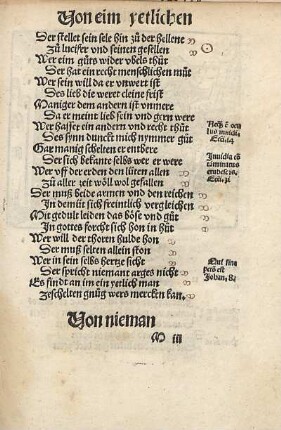 Von eim yetlichen
Der stellet sein sele hin zů der hellene
Zů lucifer vnd seinen gesellen
Wer eim gůrs wider vbels thůt
Der hat ein recht menschlichen můt
Wer sein will da er vnwert ist
Des lieb die weret cleine frist
Maniger dem andern ist vnmere
Da er meint lieb sein vnd gern were
Wer hasset ein andern vnd recht thůt
Des synn dunckt mich nymmer gůt
Gar manig schelten er entbere
Der sich bekante selbs wer er were
Wer vff der erden den lüten allen
Zů aller zeit wöll wol gefallen
Der můß beide armen vnd den reichen
In demůt sich freintlich vergleichen
Mit gedult leiden das böse vnd gůt
In gottes forcht sich hon in hůt
Wer will der thoren hulde hon
Der můß selten allein ston
Wer in sein selbs hertze sicht
Der spricht niemant arges nicht
Es findt an im ein yetlich man
zeschelten gnůg wers mercken kan.
Von nieman
M iii
Eccl. 14
Inuidia